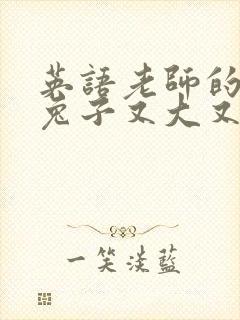 英語老師的
兔子又大又
一笑淡藍